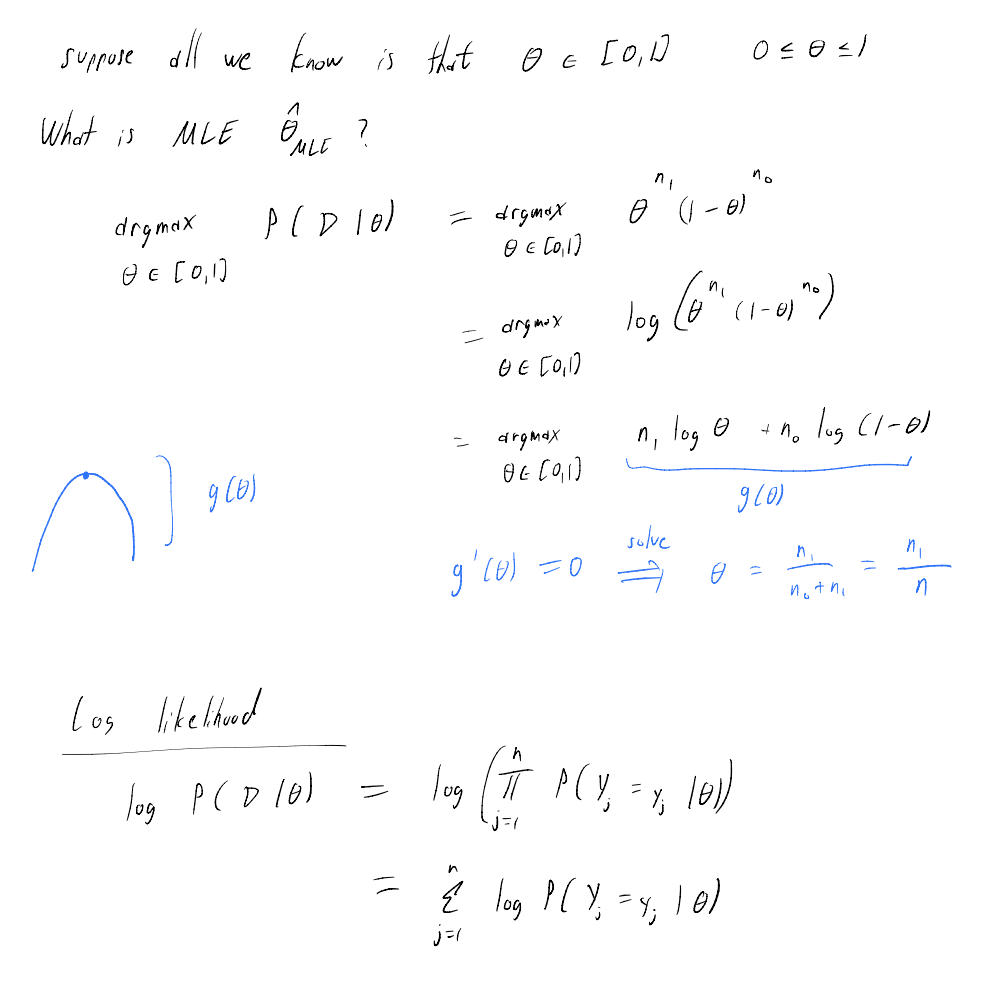 suppose all we know is that θ ∈ [0,1]   0 ≤ θ ≤ 1
What is MLE θ̂_MLE ?
argmax_{θ ∈ [0,1]} P(D|θ) = argmax_{θ ∈ [0,1]} θ^{n₁} (1-θ)^{n₀}
= argmax_{θ ∈ [0,1]} log(θ^{n₁} (1-θ)^{n₀})
= argmax_{θ ∈ [0,1]} n₁ log θ + n₀ log(1-θ)
g(θ)
g(θ)
g'(θ) = 0 ⟹ solve θ = n₁/(n₀+n₁) = n₁/n
Log likelihood
log P(D|θ) = log(∏_{j=1}^{n} P(Y_j = y_j |θ))
= Σ_{j=1}^{n} log P(Y_j = y_j | θ)